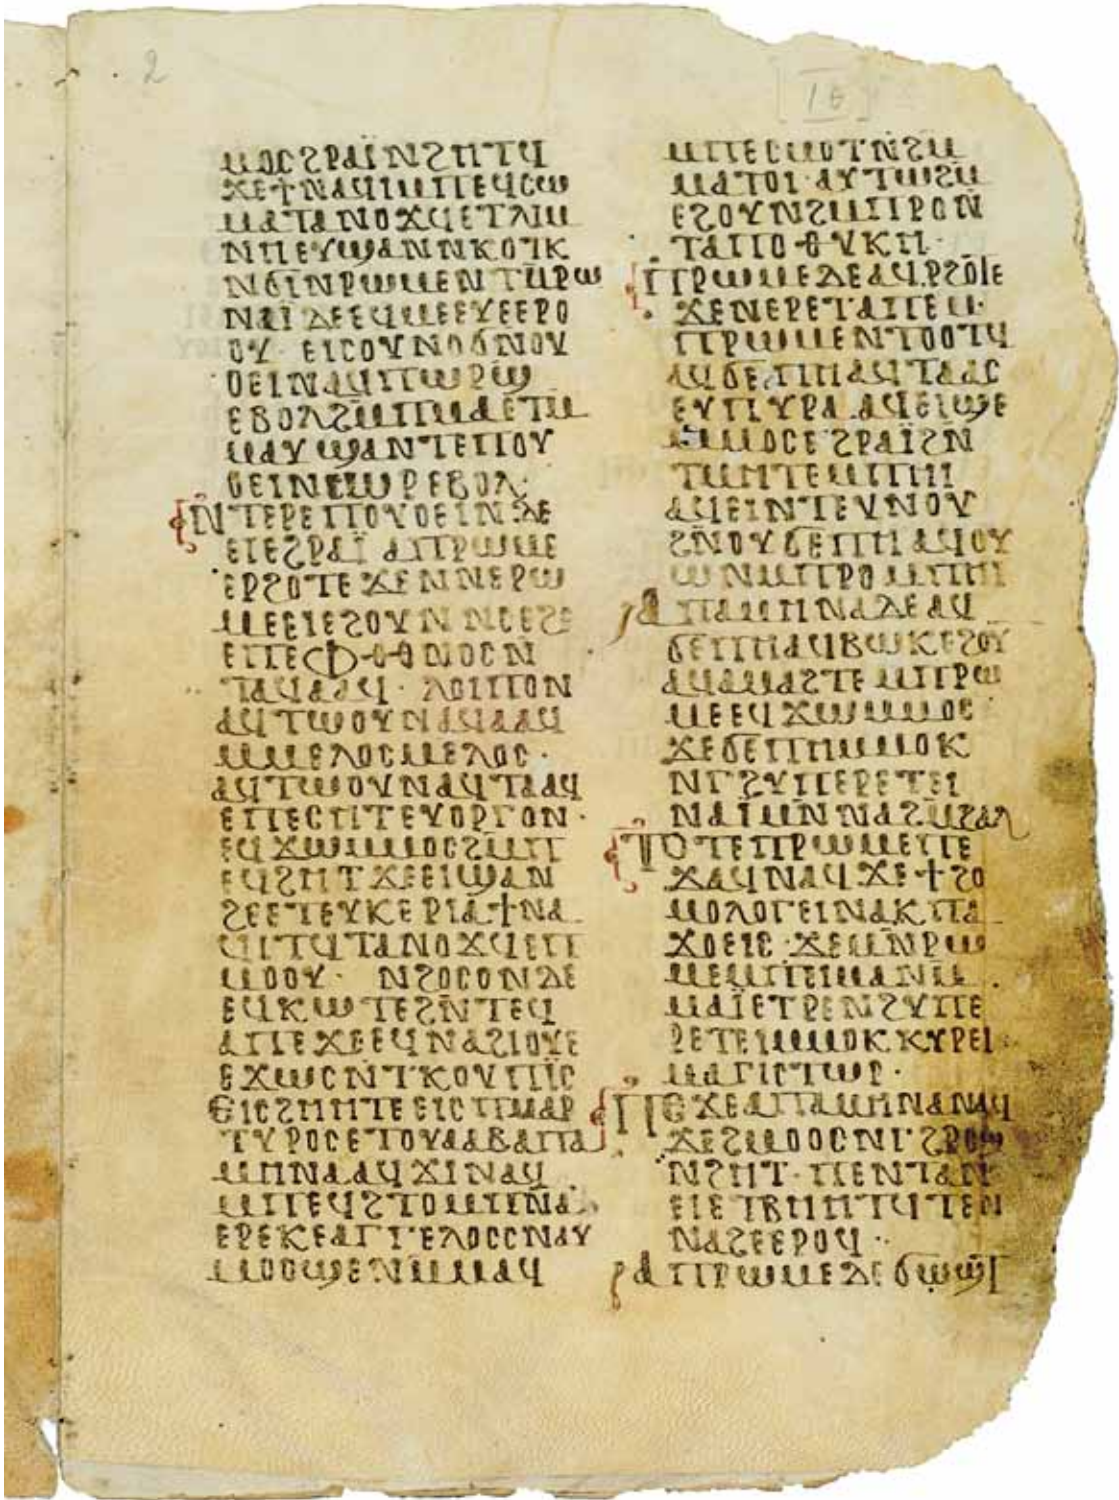 2
16
ⲙⲟⲥϩⲣⲁⲓ̈ⲛϩⲏⲧϥ
ϫⲉϯⲛⲁϥⲓⲙⲡⲉϥⲥⲱ
ⲙⲁⲧⲁⲛⲟϫϥⲉⲧⲗⲓⲙ
ⲛⲏⲉⲩϣⲁⲛⲛⲕⲟⲧⲕ
ⲛϭⲓⲛⲣⲱⲙⲉⲛⲧⲏⲣⲱ
ⲛⲁⲓ̈ⲇⲉⲉϥⲙⲉⲉⲩⲉⲉⲣⲟ
ⲟⲩ· ⲉⲓⲥⲟⲩⲛⲟϭⲛⲟⲩ
ⲟⲉⲓⲛⲁϥⲡⲱⲣϣ
ⲉⲃⲟⲗϩⲙⲡⲙⲁⲉⲧⲙ
ⲙⲁⲩϣⲁⲛⲧⲉⲡⲟⲩ
ⲟⲉⲓⲛⲥⲱⲣⲉⲃⲟⲗ·
ⲛ̄ⲧⲉⲣⲉⲡⲟⲩⲟⲉⲓⲛⲇⲉ
ⲉⲓⲉϩⲣⲁⲓ̈ ⲁⲡⲣⲱⲙⲉ
ⲉⲣϩⲟⲧⲉϫⲉⲛⲛⲉⲣⲱ
ⲙⲉⲉⲓⲉϩⲟⲩⲛⲛⲥⲉϩⲉ
ⲉⲡⲉⲫⲑⲟⲛⲟⲥⲛ
ⲧⲁϥⲁⲁϥ· ⲗⲟⲓⲡⲟⲛ
ⲁϥⲧⲱⲟⲩⲛⲁϥⲁⲁϥ
ⲙⲙⲉⲗⲟⲥⲙⲉⲗⲟⲥ·
ⲁϥⲧⲱⲟⲩⲛⲁϥⲧⲁⲁϥ
ⲉⲡⲉⲥⲏⲧⲉⲩⲟⲣⲅⲟⲛ·
ⲉϥϫⲱⲙⲙⲟⲥϩⲙⲡ
ⲉϥϩⲏⲧϫⲉⲉⲓϣⲁⲛ
ϩⲉⲉⲧⲉⲩⲕⲉⲣⲓⲁϯⲛⲁ
ϥⲓⲧϥⲧⲁⲛⲟϫϥⲉⲡ
ⲙⲟⲟⲩ· ⲛϩⲟⲥⲟⲛⲇⲉ
ⲉϥⲕⲱⲧⲉϩⲛ̄ⲧⲉϥ
ⲁⲡⲉϫⲉⲉϥⲛⲁϩⲓⲟⲩⲉ
ⲉϫⲱⲥⲛⲧⲕⲟⲩⲡⲓ̈ⲥ
ⲉⲓⲥϩⲏⲏⲧⲉⲉⲓⲥⲡⲙⲁⲣ
ⲧⲩⲣⲟⲥⲉⲧⲟⲩⲁⲁⲃⲁⲡⲁ
ⲙⲏⲛⲁⲁϥϫⲓⲛⲁϥ
ⲙⲡⲉϥϩⲧⲟⲙⲡⲛ̄ⲁ
ⲉⲣⲉⲕⲉⲁⲅⲅⲉⲗⲟⲥⲥⲛⲁⲩ
ⲙⲟⲟϣⲉⲛⲙⲙⲁϥ
ⲙⲡⲉⲥⲙⲟⲧⲛ̄ϩⲙ
ⲙⲁⲧⲟⲓ· ⲁⲩⲧⲱϩⲙ
ⲉϩⲟⲩⲛϩⲙⲡⲣⲟⲛ̄
ⲧⲁⲡⲟⲑⲩⲕⲏ·
ⲡⲣⲱⲙⲉⲇⲉⲁϥⲣϩⲟⲧⲉ
ϫⲉⲛⲉⲣⲉⲧⲁⲡⲉⲙ
ⲡⲣⲱⲙⲉⲛⲧⲟⲟⲧϥ
ⲁϥϭⲉⲡⲏⲁϥⲧⲁⲁⲥ
ⲉⲩⲡⲩⲣⲁ ⲁϥⲉⲓϣⲉ
ⲙⲙⲟⲥⲉϩⲣⲁⲓ̈ϩⲛ̄
ⲧⲙⲏⲧⲉⲙⲡⲏⲓ
ⲁϥⲉⲓⲛⲧⲉⲩⲛⲟⲩ
ϩⲛ̄ⲟⲩϭⲉⲡⲏⲁϥⲟⲩ
ⲱⲛⲙⲡⲣⲟⲙⲡⲏⲓ
ⲁⲡⲁⲙⲏⲛⲁⲇⲉⲁϥ
ϭⲉⲡⲏⲁϥⲃⲱⲕⲉϩⲟⲩ
ⲁϥⲁⲙⲁϩⲧⲉⲙⲡⲣⲱ
ⲙⲉⲉϥϫⲱⲙⲙⲟⲥ
ϫⲉϭⲉⲡⲏⲙⲙⲟⲕ
ⲛⲅϩⲩⲡⲉⲣⲉⲧⲉⲓ
ⲛⲁⲓⲙⲛ̄ⲛⲁϩⲙ̄ϩⲁⲗ
ⲧⲟⲧⲉⲡⲣⲱⲙⲉⲡⲉ
ϫⲁϥⲛⲁϥ ϫⲉϯϩⲟ
ⲙⲟⲗⲟⲅⲉⲓⲛⲁⲕⲡⲁ
ϫⲟⲉⲓⲥ· ϫⲉⲙⲛ̄ⲣⲱ
ⲙⲉⲙⲡⲉⲓⲙⲁⲛⲙ
ⲙⲁⲓ̈ⲉⲧⲣⲉⲛϩⲩⲡⲉ
ⲣⲉⲧⲉⲓⲙⲙⲟⲕⲕⲩⲣⲉⲓ
ⲙⲁⲅⲓⲥⲧⲱⲣ·
ⲡⲉϫⲉⲁⲡⲁⲙⲏⲛⲁⲛⲁϥ
ϫⲉϩⲙⲟⲟⲥⲛⲅϩⲣⲟϣ
ⲛϩⲏⲧ· ⲡⲉⲛⲧⲁⲛ
ⲉⲓⲉⲧⲃⲏⲏⲧϥⲧⲉⲛ
ⲛⲁϩⲉⲉⲣⲟϥ··
ⲁⲡⲣⲱⲙⲉⲇⲉϭⲱϣⲧ̄